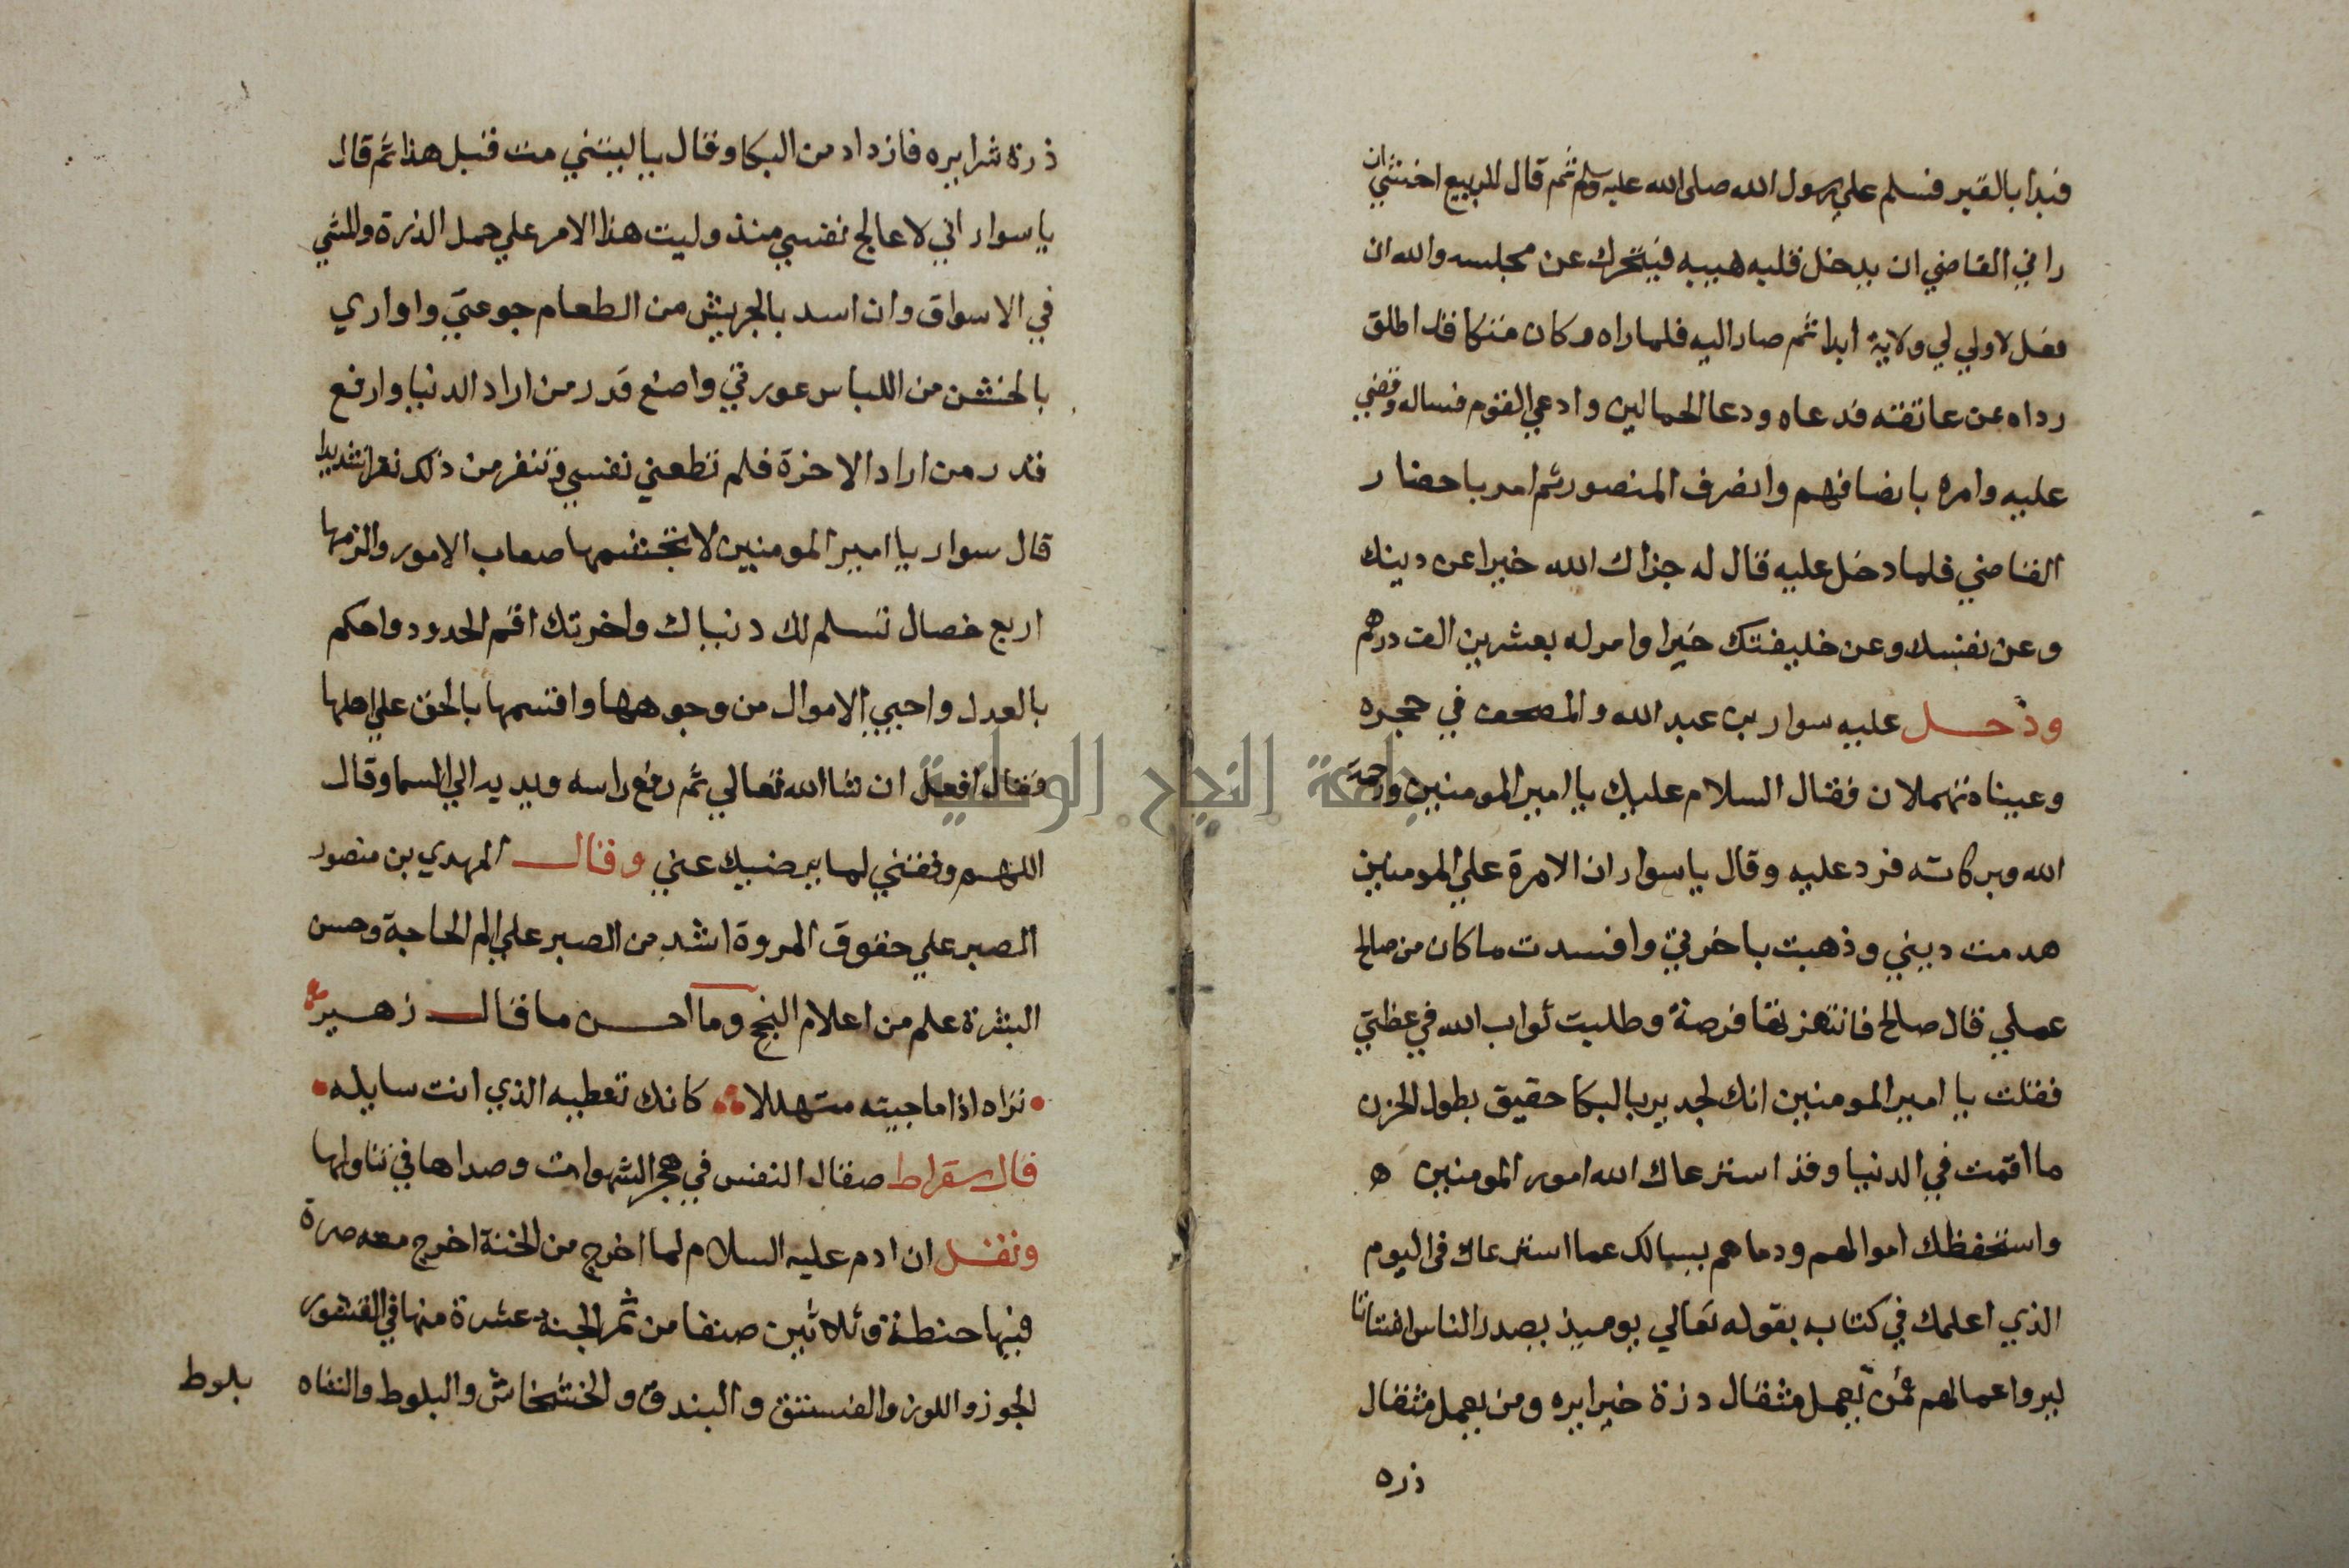 فبدا بالقبر فسلم علي رسول الله صلى الله عليه وسلم ثم قال للربيع اخشي ان
راني القاضي ان يدخل قلبه هيبه فيتحرك عن مجلسه والله ان
فعل لا ولي لي ولاية ابدا ثم صار اليه فلما راه وكان متكا فد اطلق
رداه عن عاتقه فدعاه ودعا الحمالين وادعي القوم فساله وقضي
عليه وامره بانصافهم وانصرف المنصور ثم امر باحضار
القاضي فلما دخل عليه قال له جزاك الله خيرا عن دينك
وعن نفسك وعن خليفتك خيرا وامر له بعشرين الف درهم
ودخل عليه سوار بن عبد الله والمصحف في حجره
وعيناه تهملان فقال السلام عليك يا امير المومنين ورحمة
الله وبركاته فرد عليه وقال يا سوار ان الامرة علي المومنين
هدمت ديني وذهبت باخرتي وافسدت ما كان من صالح
عملي قال صالح فانتهزتها فرصة وطلبت ثواب الله في عظتي
فقلت يا امير المومنين انك لجدير بالبكا حقيق بطول الحزن
ما اقمت في الدنيا وقد استرعاك الله امور المومنين ه
واستحفظك اموالهم ودماهم يسالك عما استرعاك في اليوم
الذي اعلمك في كتابه بقوله تعالي يوميذ يصدر الناس اشتاتا
ليروا اعمالهم فمن يعمل مثقال ذرة خيرا يره ومن يعمل مثقال
ذره
ذرة شرا يره فازداد من البكا وقال يا ليتني مت قبل هذا ثم قال
يا سوار اني لاعالج نفسي منذ وليت هذا الامر علي حمل الدرة والمشي
في الاسواق وان اسد بالجريش من الطعام جوعتي واواري
بالخشن من اللباس عورتي واضع قدر من اراد الدنيا وارفع
قدر من اراد الاخرة فلم تطعني نفسي وتنفر من ذلك نفرا شديدا
قال سوار يا امير المومنين لا تجشمها صعاب الامور والزمها
اربع خصال تسلم لك دنياك واخرتك اقم الحدود واحكم
بالعدل واجبي الاموال من وجوهها واقسمها بالحق علي اهلها
فقال افعل ان شا الله تعالي ثم رفع راسه ويديه الي السما وقال
اللهم وفقني لما يرضيك عني وقال المهدي بن منصور
الصبر علي حقوق المروة اشد من الصبر علي الم الحاجة وحسن
البشرة علم من اعلام النجح وما احسن ما قال زهير
تراه اذا ما جيته متهللا كانك تعطيه الذي انت سايله
قال سقراط صقال النفس في هجر الشهوات وصداها في تناولها
ونقل ان ادم عليه السلام لما اخرج من الجنة اخرج معه صرة
فيها حنطة وثلاثين صنفا من ثمر الجنة عشرة منها في القشور
الجوز واللوز والفستق والبندق والخشخاش والبلوط والتفاه
بلوط
جامعة النجاح الوطنية